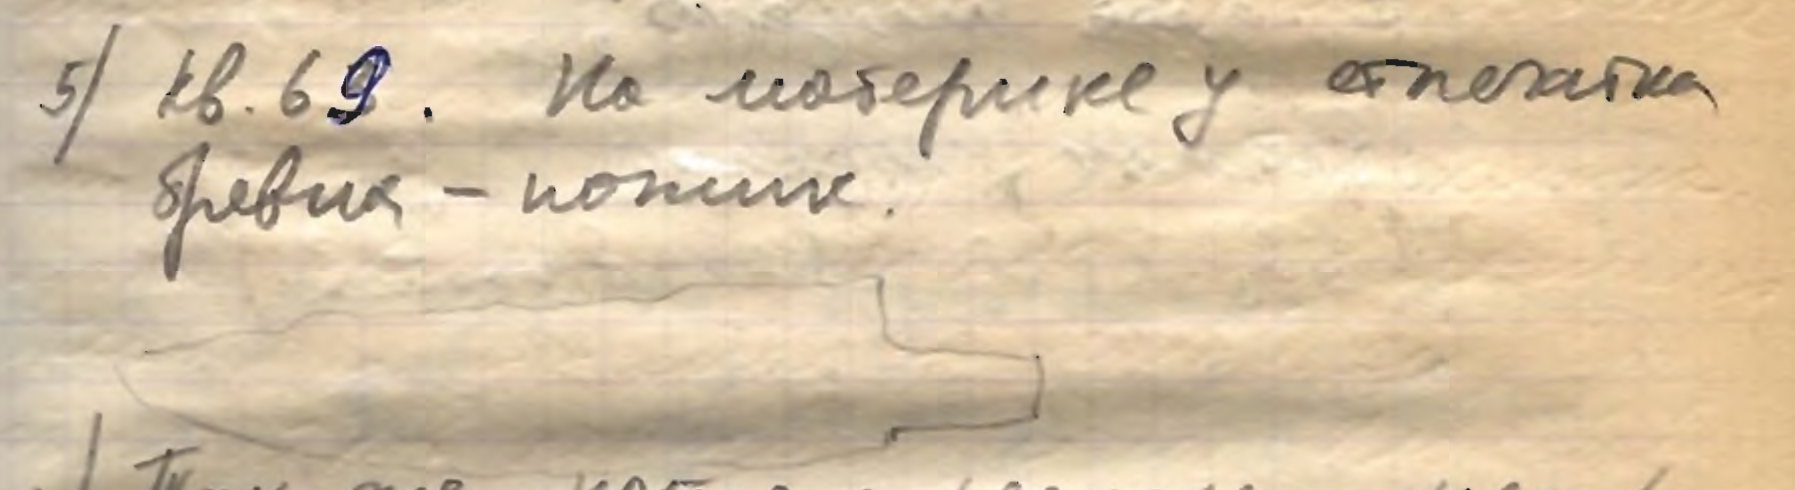 5/ кв. 69. На материке у отпечатка
бревна – ножик.